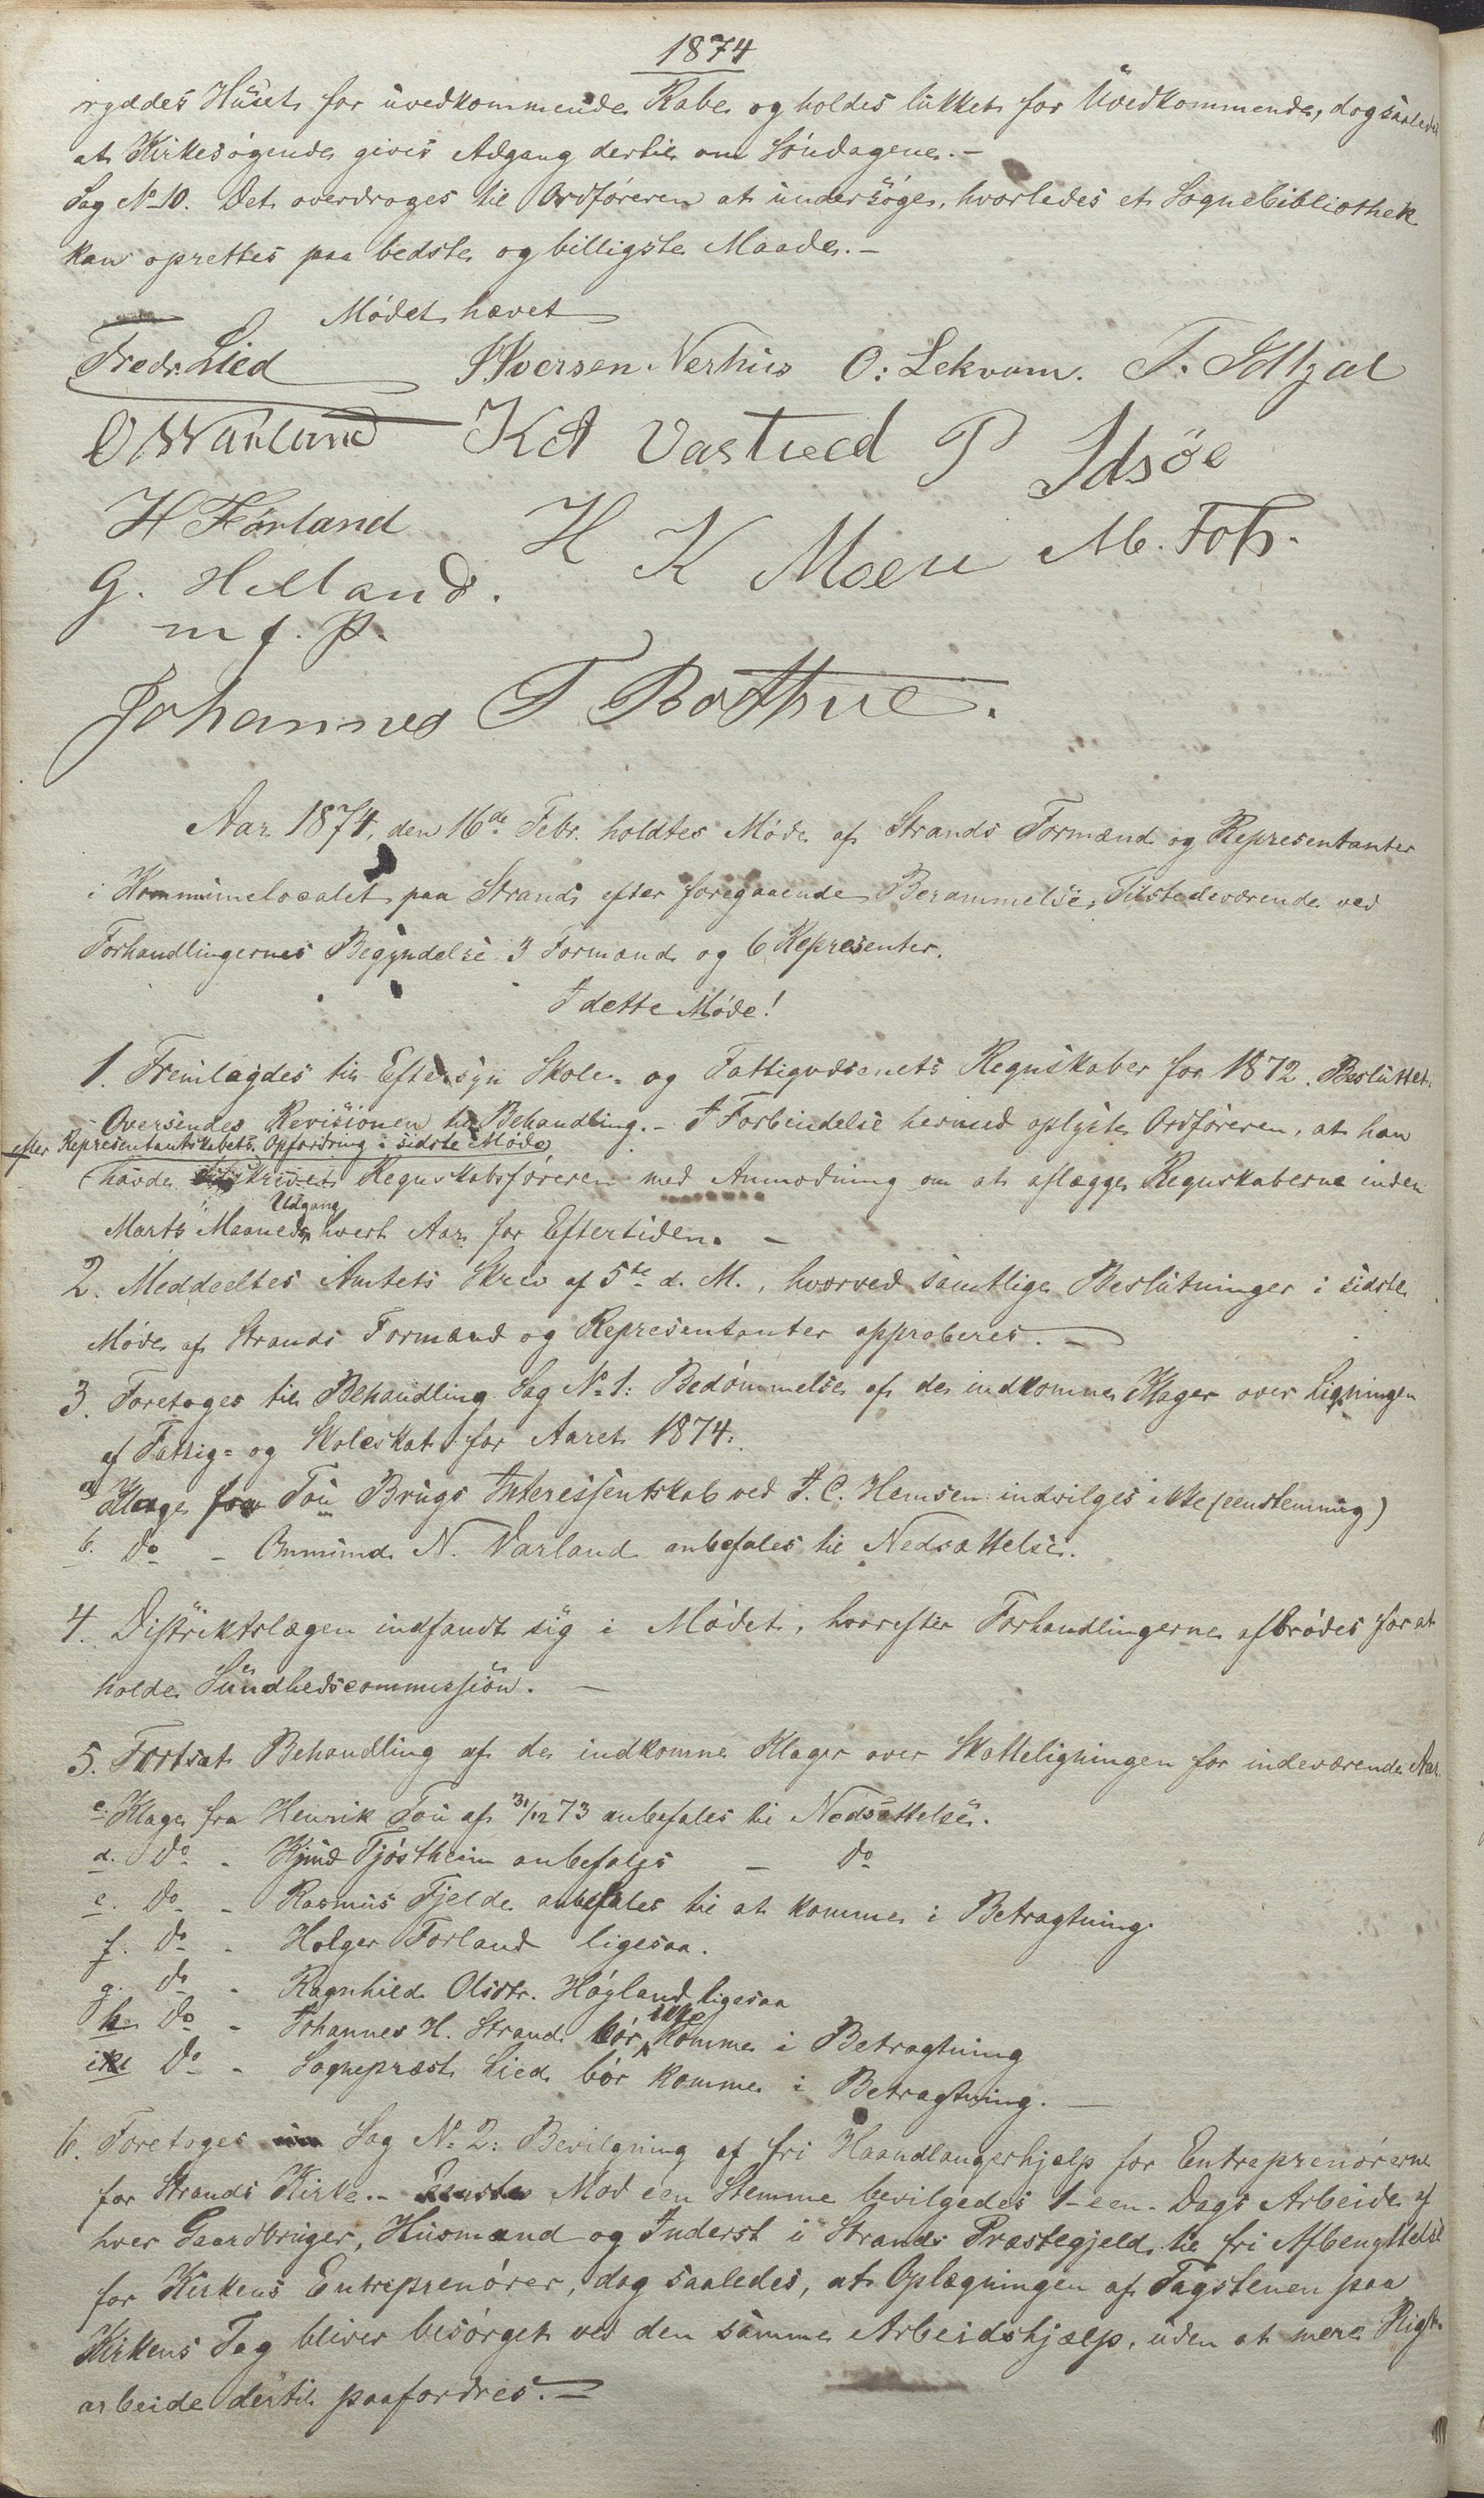 1874
ryddes Huset for uvedkommende Sager og holdes lukket for Uvedkommende, dog saaledes
at Kirkesøgende gives Adgang dertil om Søndagene. –
Sag No 10. Det overdroges til Ordføreren at undersøge, hvorledes et Sognebibliothek
kan oprettes paa bedste og billigste Maade. –
Mødet hævet
Fredr. Lied Iversen Nerhus O: Lekvam. T.
K A Vastveed P Idsöe
H Førland H K Moen M. Foss.
G. Helland.
m f. P.
Johannes T Bothne.
Aar 1874, den 16de Febr. holdtes Møde af Strands Formænd og Representanter
i Kommunelocalet paa Strand efter foregaaende Berammelse, Tilstedeværende ved
Forhandlingernes Begyndelse 3 Formænd og 6 Representer.
I dette Møde!
1. Fremlagdes til Eftersyn Skole- og Fattigvæsenets Regnskaber for 1872. Besluttet
Oversendes Revisionen til Behandling. – I Forbindelse hermed oplyste Ordføreren, at han
efter Representantskabets Opfordring i sidste Møde
havde tilskrevet Regnskabsføreren med Anmodning om at aflægge Regnskaberne inden
Udgang
Marts Maaneds hvert Aar for Eftertiden. –
2. Meddeeltes Amtets Skriv af 5te d. M., hvorved samtlige Beslutninger i sidste
Møde af Strands Formænd og Representanter approberes. –
3. Foretoges til Behandling Sag No 1: Bedømmelse af de indkomne Klager over Ligningen
af Fattig- og Skoleskat for Aaret 1874:
a Klage fra Tou Brugs Interessentskab ved I. C. Hemsen indvilges ikke (eenstemmig)
b. Do – Ommund N. Varland anbefales til Nedsættelse.
4. Distriktslægen indfandt sig i Mødet, hvorefter Forhandlingerne afbrødes for at
holde Sundhedscommission. –
5. Fortsat Behandling af de indkomne Klager over Skatteligningen for indeværende Aar.
c. Klage fra Henrik Tou af 31/12 73 anbefales til Nedsættelse.
d. Do – Knud Tjøstheim anbefales – Do
e. Do – Rasmus Fjelde anbefales til at komme i Betragtning.
f. Do – Holger Førland ligesaa.
g. Do – Ragnhild Olsdtr. Høyland ligesaa
ikke
h. Do – Johannes H. Strand bør komme i Betragtning
i Do – Sognepræst Lied bør komme i Betragtning. –
6. Foretoges Sag No 2: Bevilgning af fri Haandlangerhjælp for Entreprenørerne
for Strands Kirke. – Mod een Stemme bevilgedes 1 – een – Dags Arbeide af
hver Gaardbruger, Husmand og Inderst i Strands Præstegjeld til fri Afbenyttelse
for Kirkens Entreprenører, dog saaledes, at Oplægningen af Tagstenen paa
Kirkens Tag bliver besørget ved den samme Arbeidshjælp, uden at mere Pligt-
arbeide dertil paafordres. –